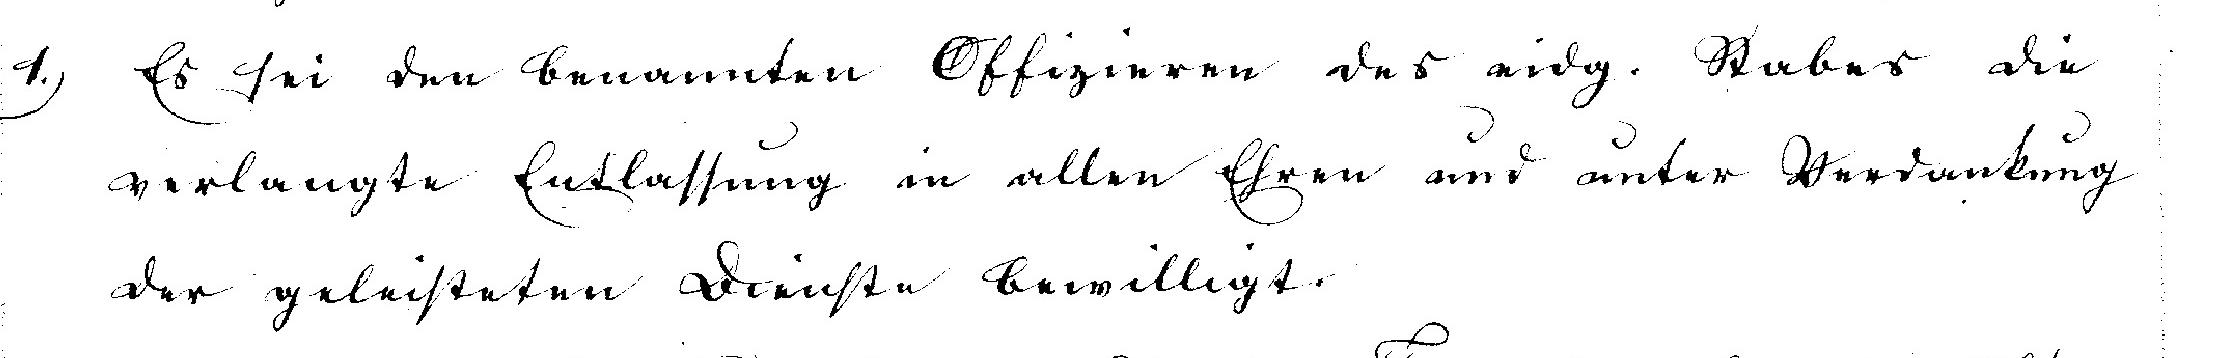 1.) Es sei den benannten Offizieren des eidg. Stabes die
verlangte Entlassung in allen Ehren und unter Verdankung
der geleisteten Dienste bewilligt.